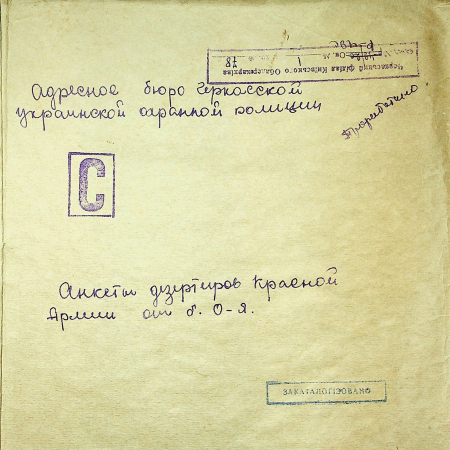 Черкаський філіал Київського Облдержархіва
1
18
Адресное бюро Черкасской
украинской охранной полиции
Проработано
С
Анкеты дезертиров Красной
Армии от б. О-Я.
ЗАКАТАЛОГІЗОВАНО